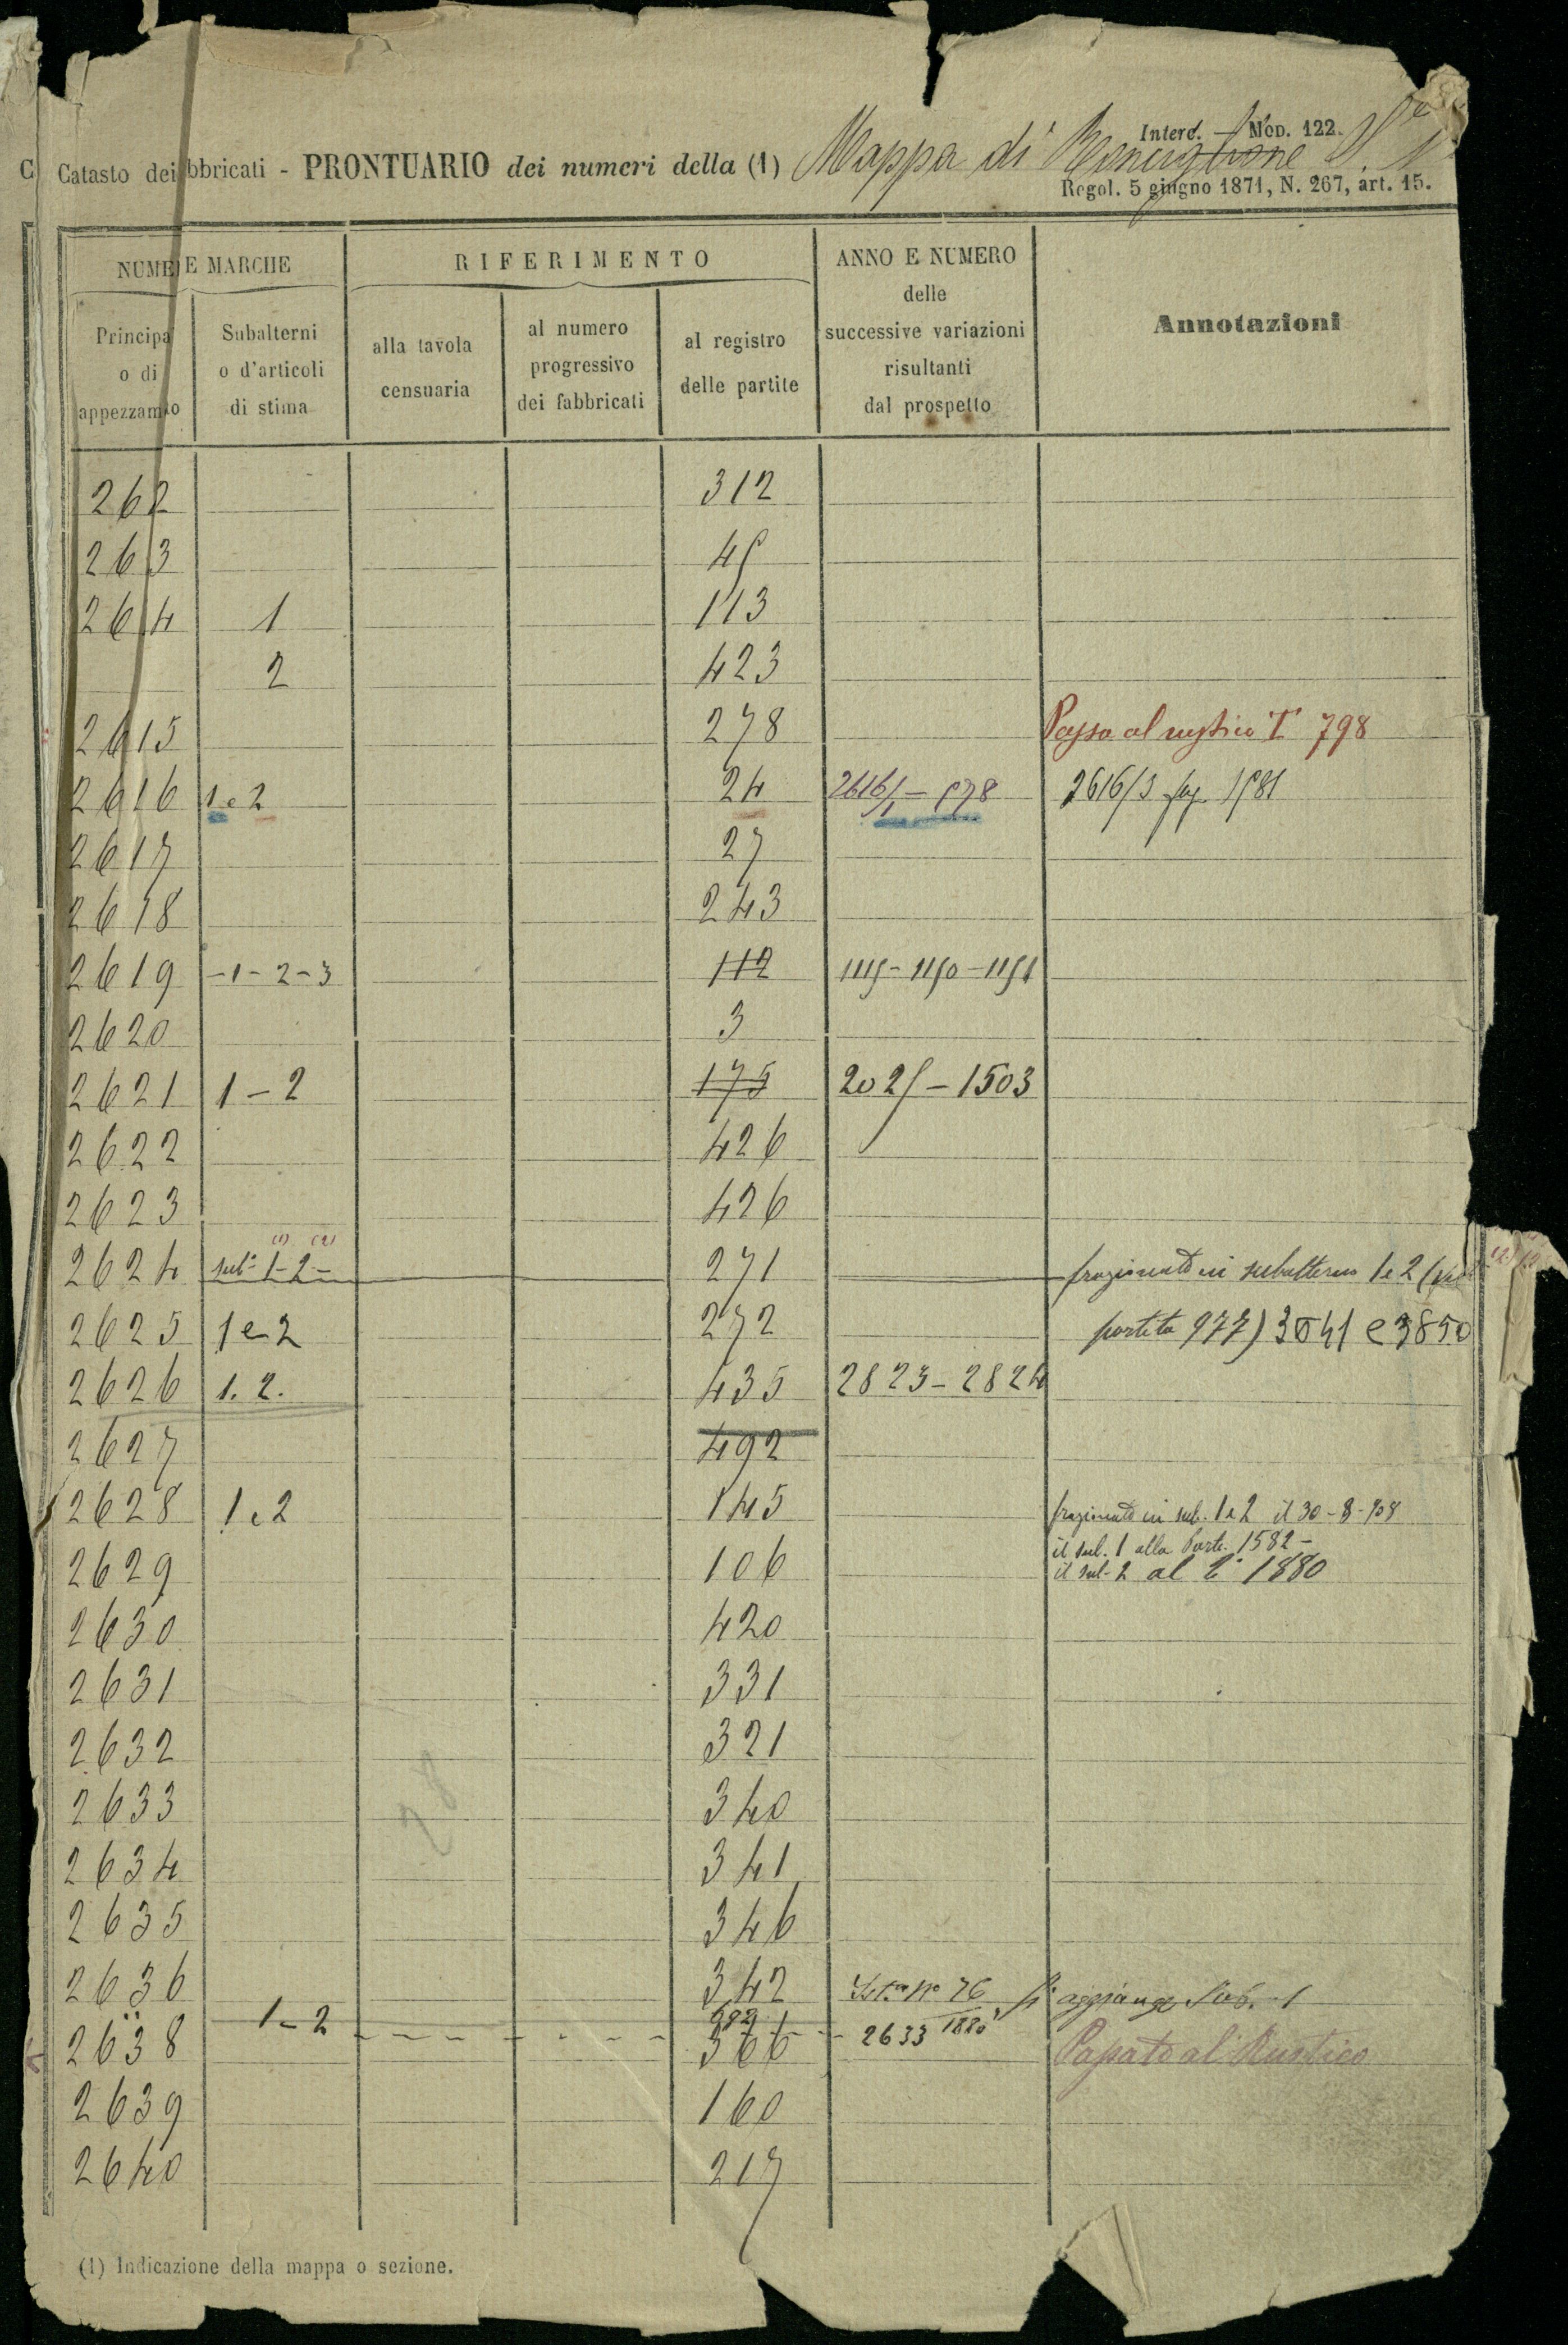 Interc. — Mod. 122.
C Catasto dei bbricati - PRONTUARIO dei numeri della (1) Mappa di Ronciglione
Regol. 5 giugno 1871, N. 267, art. 15.
NUME E MARCHE
RIFERIMENTO
ANNO E NUMERO
delle
successive variazioni
risultanti
dal prospetto
Annotazioni
Principa
o di
appezzam o
Subalterni
o d'articoli
di stima
alla tavola
censuaria
al numero
progressivo
dei fabbricati
al registro
delle partite
262 312
263 45
264 1 113
2 423
2615 278 Passa al rustico 798
2616 1 e 2 24 2616/1 — 578 2616/3 1581
2617 27
2618 243
2619 -1-2-3 112 1115-1150-1151
2620 3
2621 1-2 175 2025-1503
2622 426
2623 426
(1) (2)
2624 sub. 1-2- 271 frazionato in subalterno 1 e 2
2625 1 e 2 272 partita 977) 3041 e 3850
2626 1. 2. 435 2823-2824
2627 492
2628 1 e 2 145 frazionato in sub. 1 e 2 il 30-8-908
il sub. 1 alla Part. 1582-
il sub. 2 al 1880
2629 106
2630 420
2631 331
2632 321
2633 340
2634 341
2635 346
2636 342 N° 76 aggiunge Sub. 1
1880
2638 1-2 366 2633 Passato al Rustico
2639 160
2640 217
(1) Indicazione della mappa o sezione.